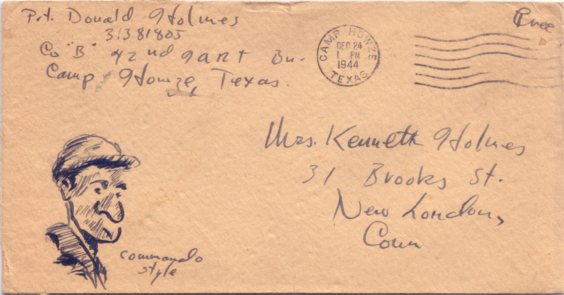 Pvt. Donald Holmes
31381805
Co "B" 42nd 9ART Bn.
Camp Howze, Texas.
Free
CAMP HOWZE
DEC 24
1 PM
1944
TEXAS
Mrs. Kenneth Holmes
31 Brooks St.
New London,
Conn
commando
style